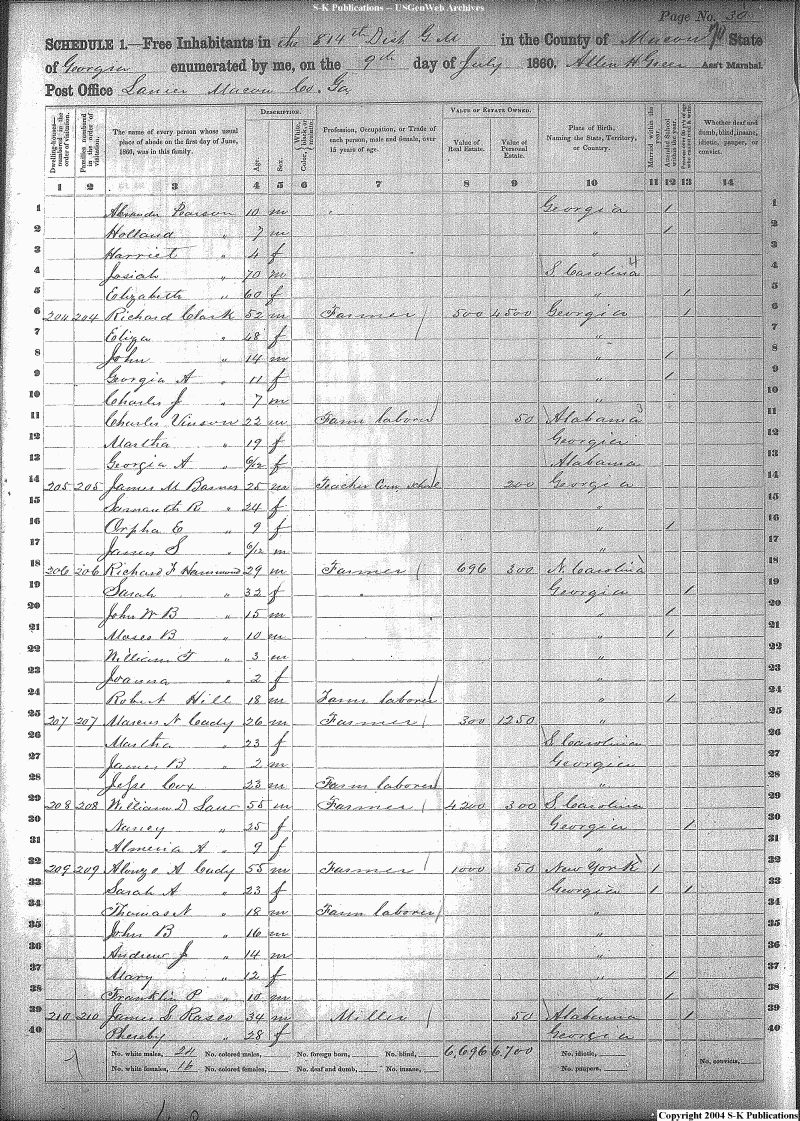 S-K Publications -- USGenWeb Archives
Page No. 30
SCHEDULE 1.—Free Inhabitants in the 814st Dist G M in the County of Macon State
of Georgia enumerated by me, on the 9th day of July 1860. Allen H Greer Ass't Marshal.
Post Office Lanier Macon Co. Ga
Dwelling-houses—numbered in the order of visitation. Families numbered in the order of visitation. The name of every person whose usual place of abode on the first day of June, 1860, was in this family. DESCRIPTION. Age. Sex. Color, White, black, or mulatto. Profession, Occupation, or Trade of each person, male and female, over 15 years of age. VALUE OF ESTATE OWNED. Value of Real Estate. Value of Personal Estate. Place of Birth, Naming the State, Territory, or Country. Married within the year. Attended School within the year. Persons over 20 y'rs of age who cannot read & write. Whether deaf and dumb, blind, insane, idiotic, pauper, or convict.
1 2 3 4 5 6 7 8 9 10 11 12 13 14
1 Alexander Pearson 10 m Georgia 1 1
2 Holland " 7 m " 1 2
3 Harriet " 4 f " 3
4 Josiah " 70 m S. Carolina 4 4
5 Elizabeth " 60 f " 1 5
6 204 204 Richard Clark 52 m Farmer 500 4500 Georgia 1 6
7 Eliza " 48 f " 7
8 John " 14 m " 1 8
9 Georgia A " 11 f " 1 9
10 Charles J " 7 m " 10
11 Charles Vinson 22 m Farm laborer 50 Alabama 3 11
12 Martha " 19 f Georgia 12
13 Georgia A " 6/12 f Alabama 13
14 205 205 James M Barnes 25 m Teacher Com. School 200 Georgia 14
15 Samanth R " 24 f " 15
16 Orpha E " 9 f " 1 16
17 James S " 6/12 m " 17
18 206 206 Richard F Hammond 29 m Farmer 696 300 N. Carolina 18
19 Sarah " 32 f " Georgia 1 19
20 John W B " 15 m " 1 20
21 Moses B " 10 m " 1 21
22 William T " 3 m " 22
23 Joanna " 2 f " 23
24 Robert Hill 18 m Farm laborer " 1 24
25 207 207 Marcus N Cady 26 m Farmer 300 1250 " 25
26 Martha " 23 f S Carolina 26
27 James B " 2 m Georgia 27
28 Jesse Cox 23 m Farm laborer " 28
29 208 208 William D Law 55 m Farmer 4200 300 S. Carolina 29
30 Nancy " 25 f Georgia 1 30
31 Almeria A " 9 f " 31
32 209 209 Alonzo A Cady 55 m Farmer 1000 50 New York 1 32
33 Sarah A " 23 f Georgia 1 1 33
34 Thomas N " 18 m Farm laborer " 34
35 John B " 16 m " 35
36 Andrew J " 14 m " 36
37 Mary " 12 f " 1 37
38 Franklin P " 10 m " 1 38
39 210 210 James L Rasco 34 m Miller 50 Alabama 1 39
40 Phereby " 28 f Georgia 40
No. white males, 24 No. colored males, No. foreign born, No. blind, 6,696 6,700 No. idiotic,
No. white females, 16 No. colored females, No. deaf and dumb, No. insane, No. paupers, No. convicts,
Copyright 2004 S-K Publications